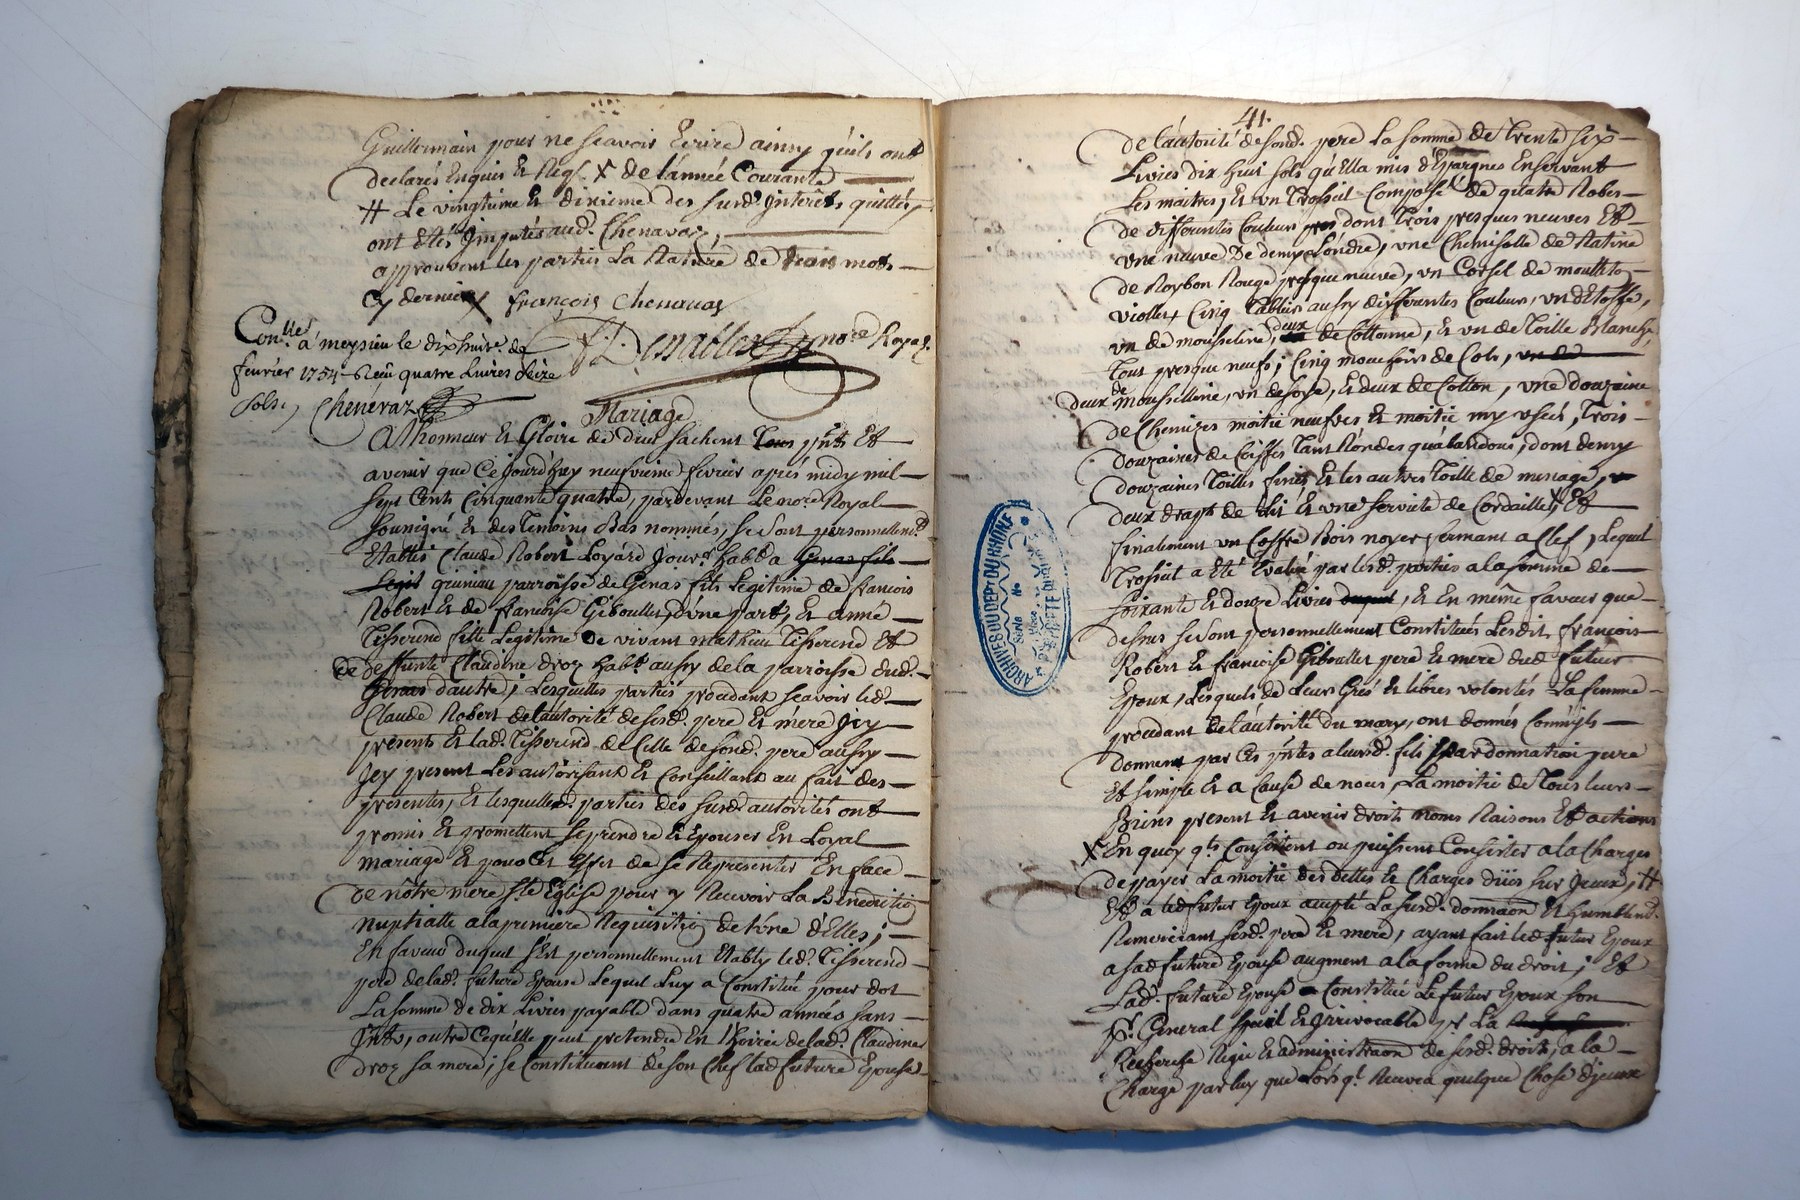 Guillermain pour ne scavoir Ecrire ainsy qu'ils ont
declarés Enquis Et Req. X de l'année Courante
# Le vingtieme Et dixieme des susd. Interêts quittés,
ont Etés Imputés aud. Chenavaz,
approuvent les parties La Rature de trois mots
Cy derniers François Chenavas
Conlle. á meysieu le dixhuite. de
fevrier 1754 Reçu quatre Livres seize
sols, Chenevaz
nore Royal.
Mariage
A L'honneur Et Gloire de dieu Sachent Tous pnts Et
avenir que Cejourd'huy neufvieme fevrier apres midy mil
Sept Cents Cinquante quatre, pardevant Le nore. Royal
Sousigné Et des Temoins Bas nommés, se sont personnellemt.
Etablis Claude Robert Loyard Jour. habt. a Genas fils
Legit griniau parroisse de Genas fils Legitime de francois
Robert Et de francoise Giboullet, d'une part, Et anne
Tisserend fille Legitime de vivant mathieu Tisserend Et
de deffunte Claudine droz habt. aussy de la parroisse dud.
Genas d'autre; Lesquelles parties procedant scavoir led.
Claude Robert de l'autorité de sesd. pere Et mere Icy
presents Et lad. Tisserend de Celle de sond. pere aussy
Icy present Les autorisant Et Conseillant au fait des
presentes, Et lesquelles parties des susd. autorités ont
promis Et promettent se prendre Et Epouser En Loyal
mariage Et pour Cet Effet de se Representer En face
de nôtre mere Ste. Eglise pour y Recevoir La Benedictio
nuptialle a la premiere Requisitio de l'une d'Elles;
En faveur duquel s'Est personnellement Etably led. Tisserend
pere de lad. future Epouse Lequel Luy a Constitué pour dot
La somme de dix Livres payable dans quatre années sans
Ints, outre Cequ'elle peut pretendre En l'hoirie de lad. Claudine
droz sa mere; se Constituant de son Chef lad future Epouse
41.
de l'autorité de sond. pere La somme de Trente six
Livres dix huit sols qu'Ella mis d'Epargnes En servant
Les maitres, Et un Trossiel Composé de quatre Robes
de differentes Couleurs dont Trois presques neuves Et
une neuve De demy Londre, une Chemisolle de Ratine
de Roybon Rouge presque neuve, un Corsel de moulleto
viollet, Cinq Tabliers aussy differentes Couleurs, un d'Etoffe,
un de mousseline, deux de Cottonne, Et un de Toille Blanche,
Tous presque neufs; Cinq mouchoirs de Cols, un de
deux de mousselline, un de soye, Et deux de Cotton, une douzaine
de Chemizes moitie neufves Et moitie my usées, Trois
douzaines de Coiffes tant Rondes qu'abandous, dont demy
douzaines Toilles fines, Et les autres Toille de menage,
deux draps de Lit Et une serviete de Cordaille, Et
finalement un Coffre Bois noyer fermant a Clef, Lequel
Trossiel a Eté Evalué par lesd. parties a la somme de
soixante Et douze Livres duquel, Et En même faveur que
dessus se sont personnellement Constitués Lesdit francois
Robert Et francoise Giboullet pere Et mere dud. futur
Epoux, Lesquels de Leurs Grés Et libres volontés La femme
procedant de l'autorité du mary, ont donnés Comm'ils
donnent par Ces pntes a leursd. fils par donnation pure
Et simple Et a Cause de noces, La moitié de Tous leurs
Biens present Et avenir droits noms Raisons Et actions
X En quoy qls Consistent ou puissent Consister a la Charge
de payer La moitié des dettes Et Charges düés sur Iceux, #
Et a led futur Epoux accepté La susd. donnaon Et humblemt.
Remerciant sesd. pere Et mere, ayant fait led futur Epoux
a sad future Epouse augment a la forme du droit; Et
Lad. future Epouse Constitué Le futur Epoux son
Pr. General special Et Irrevocable pr La
Recherche Regie Et administraon de sesd. droits, a la
Charge par luy que Lors ql Recevra quelque Chose d'iceux
ARCHIVES DU DEPT DU RHONE